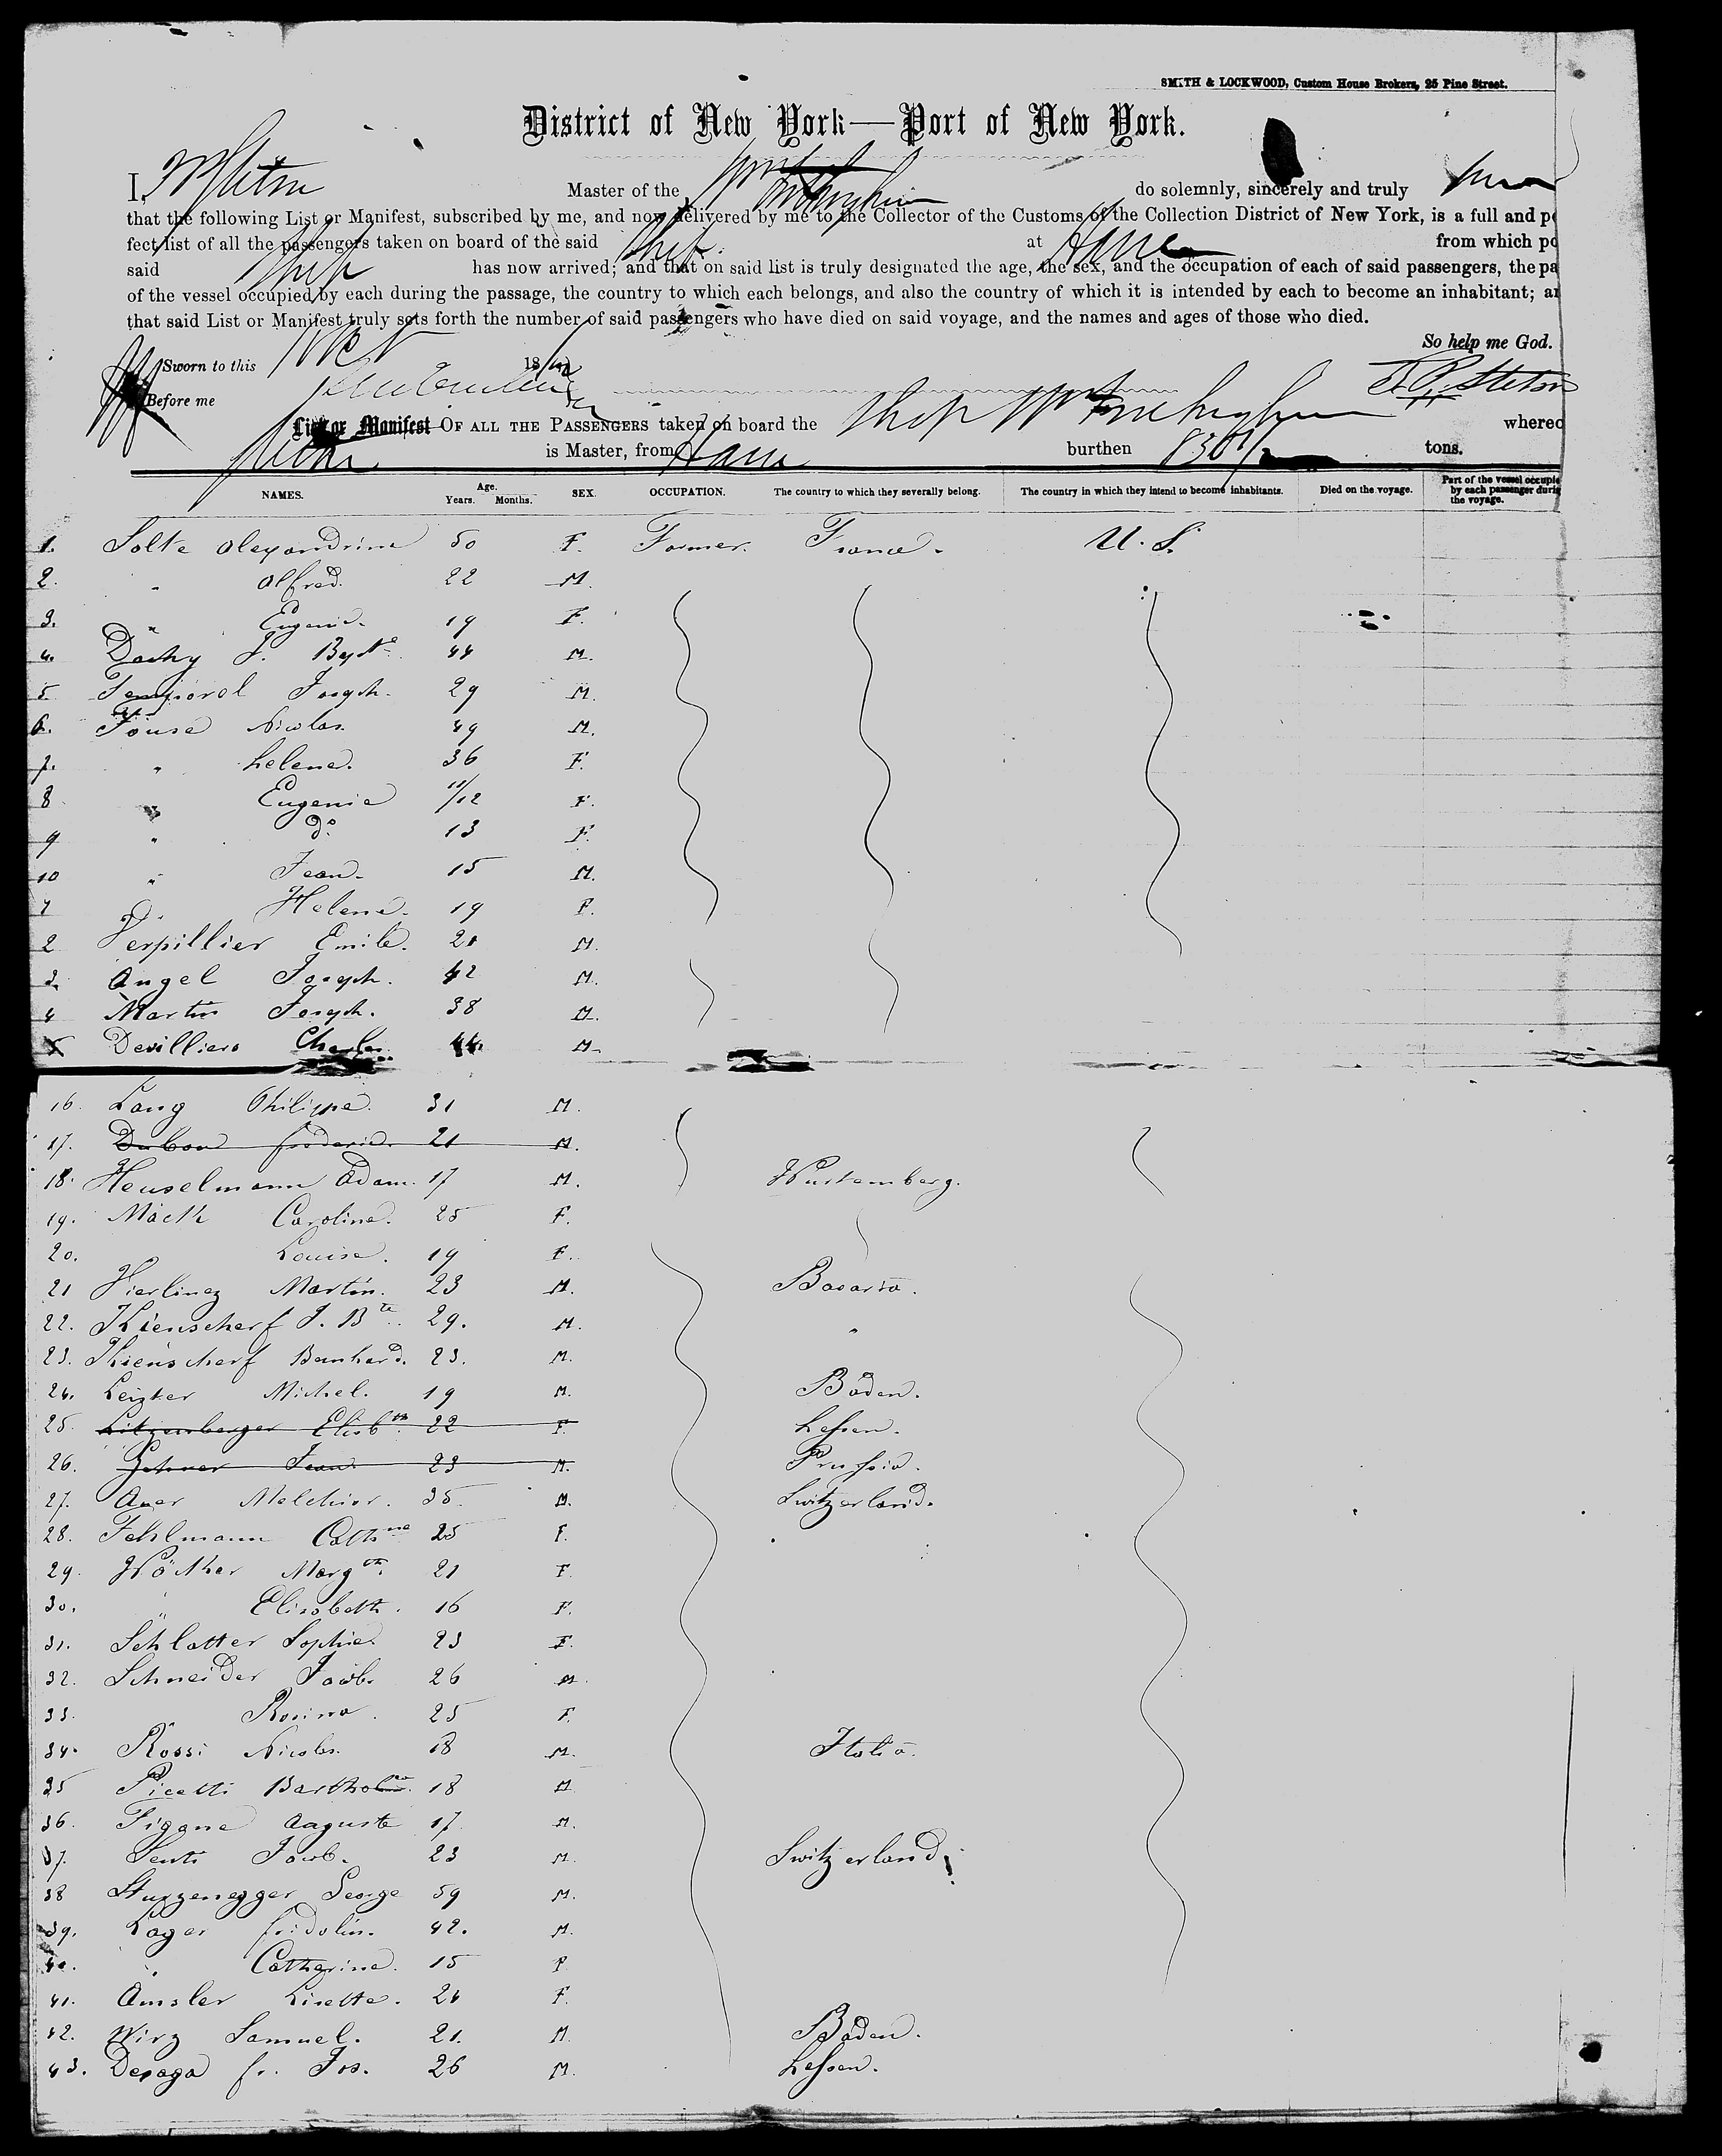 SMITH & LOCKWOOD, Custom House Brokers, 25 Pine Street.
District of New York—Port of New York.
I, Master of the do solemnly, sincerely and truly
that the following List or Manifest, subscribed by me, and now delivered by me to the Collector of the Customs of the Collection District of New York, is a full and pe
fect list of all the passengers taken on board of the said Ship at from which po
said Ship has now arrived; and that on said list is truly designated the age, the sex, and the occupation of each of said passengers, the pa
of the vessel occupied by each during the passage, the country to which each belongs, and also the country of which it is intended by each to become an inhabitant; an
that said List or Manifest truly sets forth the number of said passengers who have died on said voyage, and the names and ages of those who died.
So help me God.
Sworn to this 18
Before me
List or Manifest OF ALL THE PASSENGERS taken on board the Ship whereo
is Master, from burthen tons.
NAMES. Age. Years. Months. SEX. OCCUPATION. The country to which they severally belong. The country in which they intend to become inhabitants. Died on the voyage. Part of the vessel occupie by each passenger durin the voyage.
1. Solte Alexandrine 50 F. Farmer. France. U. S.
2. " Alfred. 22 M.
3. " Eugenie. 19 F.
4. Dachy J. Bapte 44 M.
5 Temporal Joseph. 29 M.
6. Nicolas. 49 M.
7. " helene. 36 F.
8 " Eugenie 11/12 F.
9 " do 13 F.
10 " Jean. 15 M.
1 do Helene. 19 F.
2 Verpillier Emile. 21 M.
3. Angel Joseph. 42 M.
4 Martin Joseph. 38 M.
5 Devilliers Charles 44 M.
16. Lang Philippe. 31 M.
17. Dubon frederic. 21 M.
18. Heuselmann Adam. 17 M. Wurtemberg.
19. Mack Caroline. 25 F.
20. Louise. 19 F.
21 Vierling Martin. 23 M. Bavaria.
22. Kienscherf J. Bte. 29. M. "
23. Kienscherf Bernhard. 23. M.
24. Michel. 19 M. Baden.
25. Litzenberger Elisbth. 22 F. hessen.
26. Jean 23 M. Prussia.
27. Auer Melchior. 35. M. Switzerland.
28. Fehlmann Cathne 25 F.
29. Margth. 21 F.
30. " Elisabeth. 16 F.
31. Schlatter Sophie. 23 F.
32. Schneider Jacob. 26 M.
33. " Rosina. 25 F.
34. Rossi Nicolas. 18 M. Italia.
35 Picetti 18 M
36. Auguste 17. M.
37. Senti Jacob. 23 M. Switzerland.
38 Sturzenegger George 59 M.
39. Lager fridolin. 42. M.
40. " Catharine. 15 F
41. Amsler Lisette. 24 F.
42. Wirz Samuel. 21. M. Baden.
43. Desaga fr. Jos. 26 M. hessen.